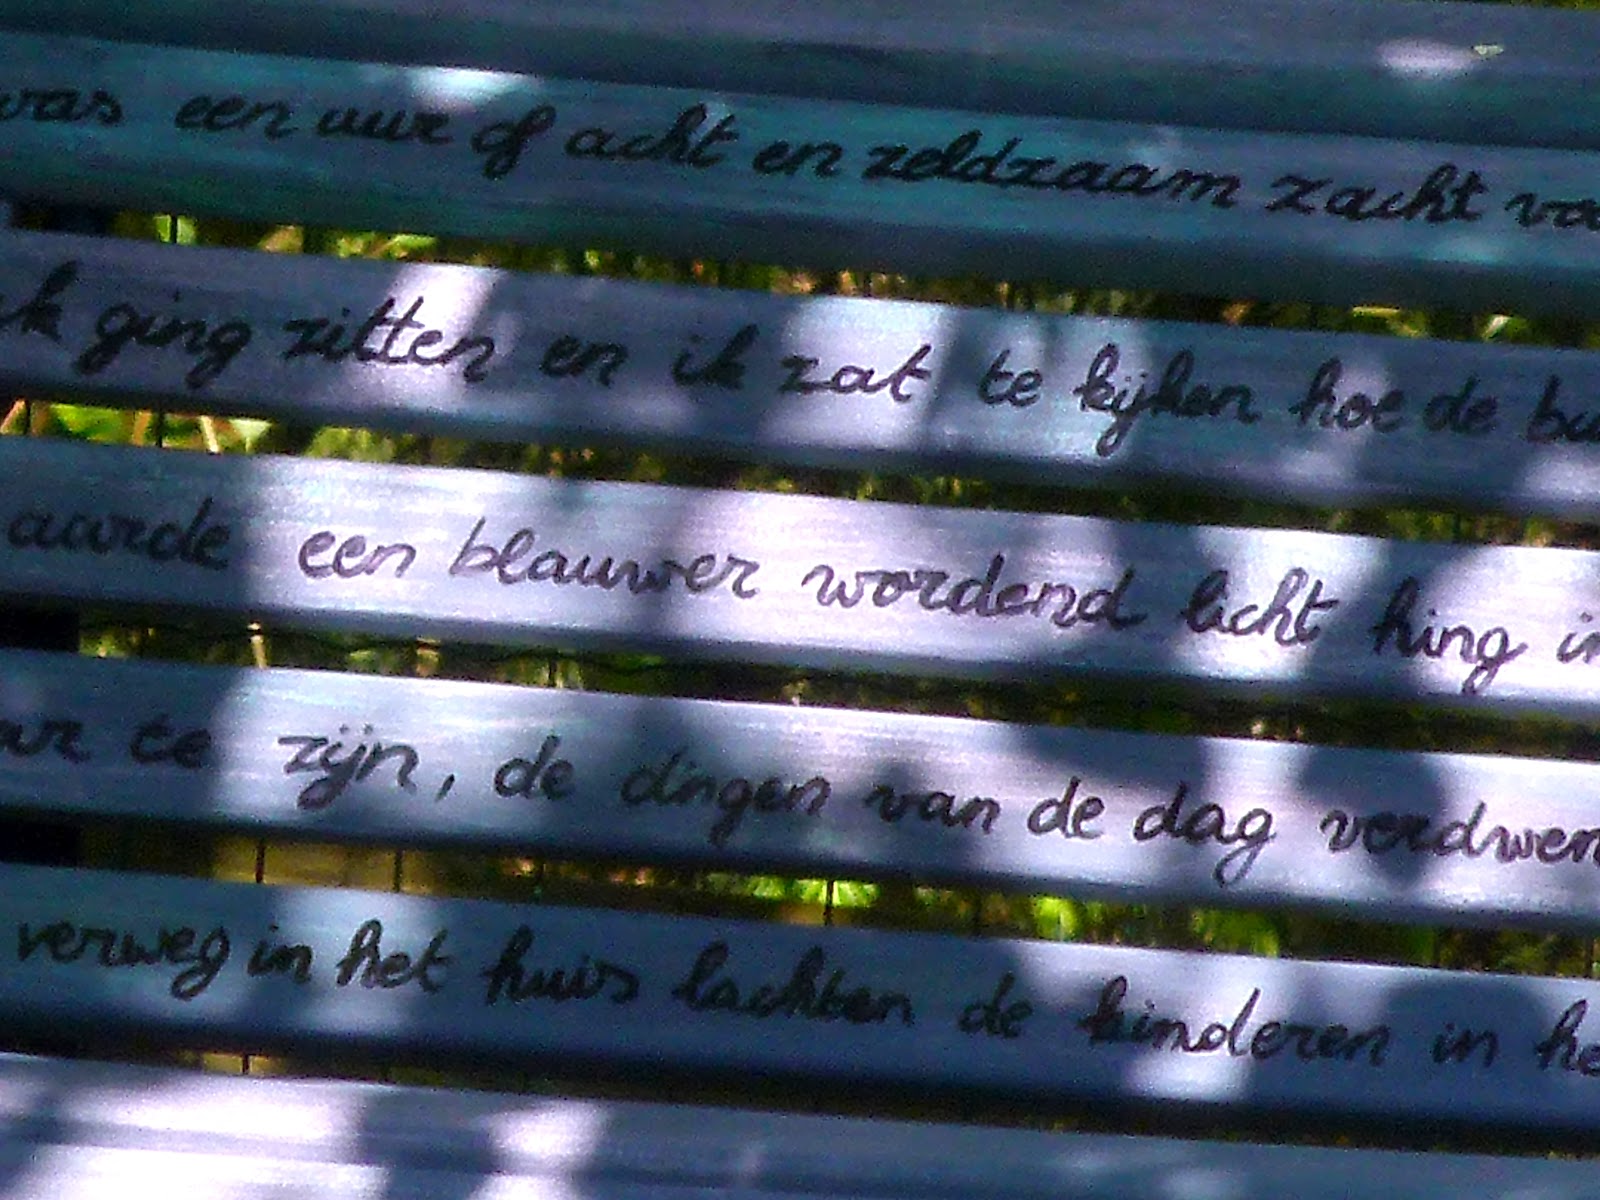 was een uur of acht en zeldzaam zacht vo
ik ging zitten en ik zat te kijken hoe de bu
aarde een blauwer wordend licht hing in
ar te zijn, de dingen van de dag verdwen
verweg in het huis lachten de kinderen in he